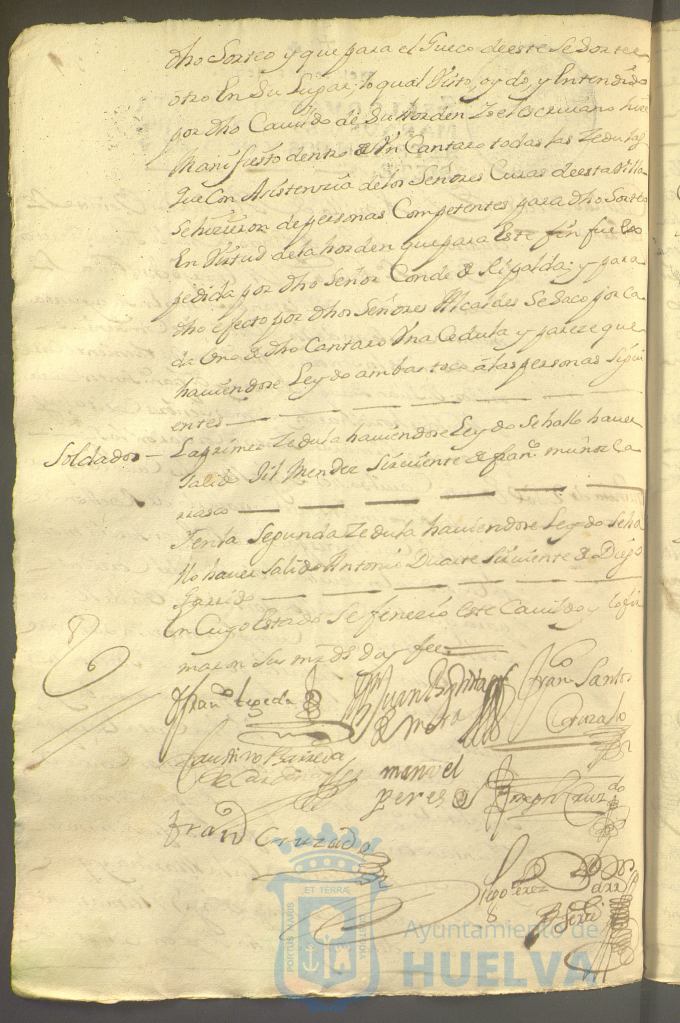 dho Sorteo y que para el Hueco de este Se Sortee
otro En Su Lugar, lo qual Visto, oydo, y Entendido
por Dho Cavildo de Su horden Io el Escrivano hize
Manifiesto dentro de Un Cantaro todas las Zedulas
Que Con Asistenzia de los Señores Curas de esta Villa
Se hizieron de personas Competentes para dho Sorteo
En Virtud de la horden que para Este fin fue Ex
pedida por dho Señor Conde de Ripalda; y para
dho efecto por dhos Señores Alcaldes Se Saco por Ca
da Uno de dho Cantaro Una Cedula y pareze que
haviendose Leydo ambas toco á las personas Sigui
entes
Soldados - La primer Zedula haviendose Leydo Se hallo haver
Salido Gil Mendez Sirviente de Franco. muñoz Ca
rrasco
Yenla Segunda Zedula haviendose Leydo Seha
llo haver Salido Antonio Duarte Sirviente de Diego
Garrido
En Cuyo Estado Se fenezio Este Cavildo y lo fir
maron Sus mrds doy fee
Franco. tejeda Juan Baptista Franco Santos
de Mora Cruzado
Faustino Barreda
de Cardenas manuel
perez Joseph Cruzdo
Fran Cruzado
Perez
ET TERRÆ
PORTUS MARIS
CUSTODIA
Ayuntamiento de
HUELVA